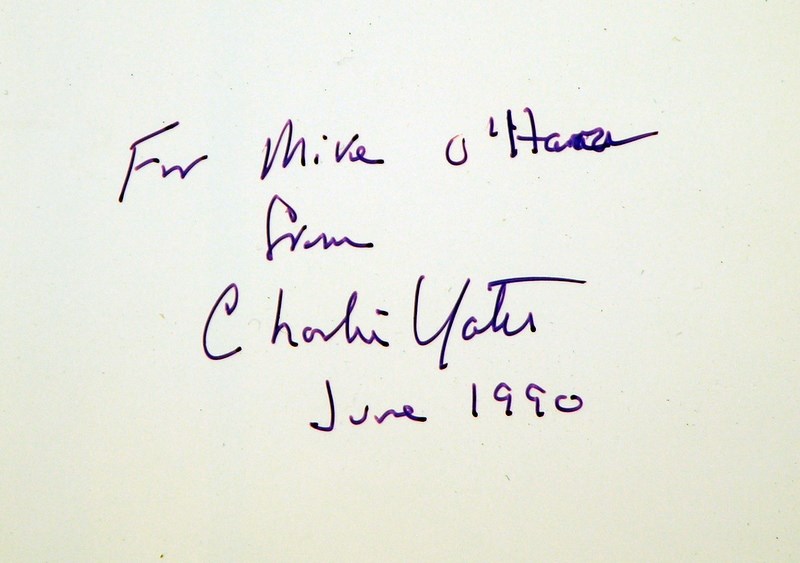 For Mike O'Hara
from
Charlie Yates
June 1990